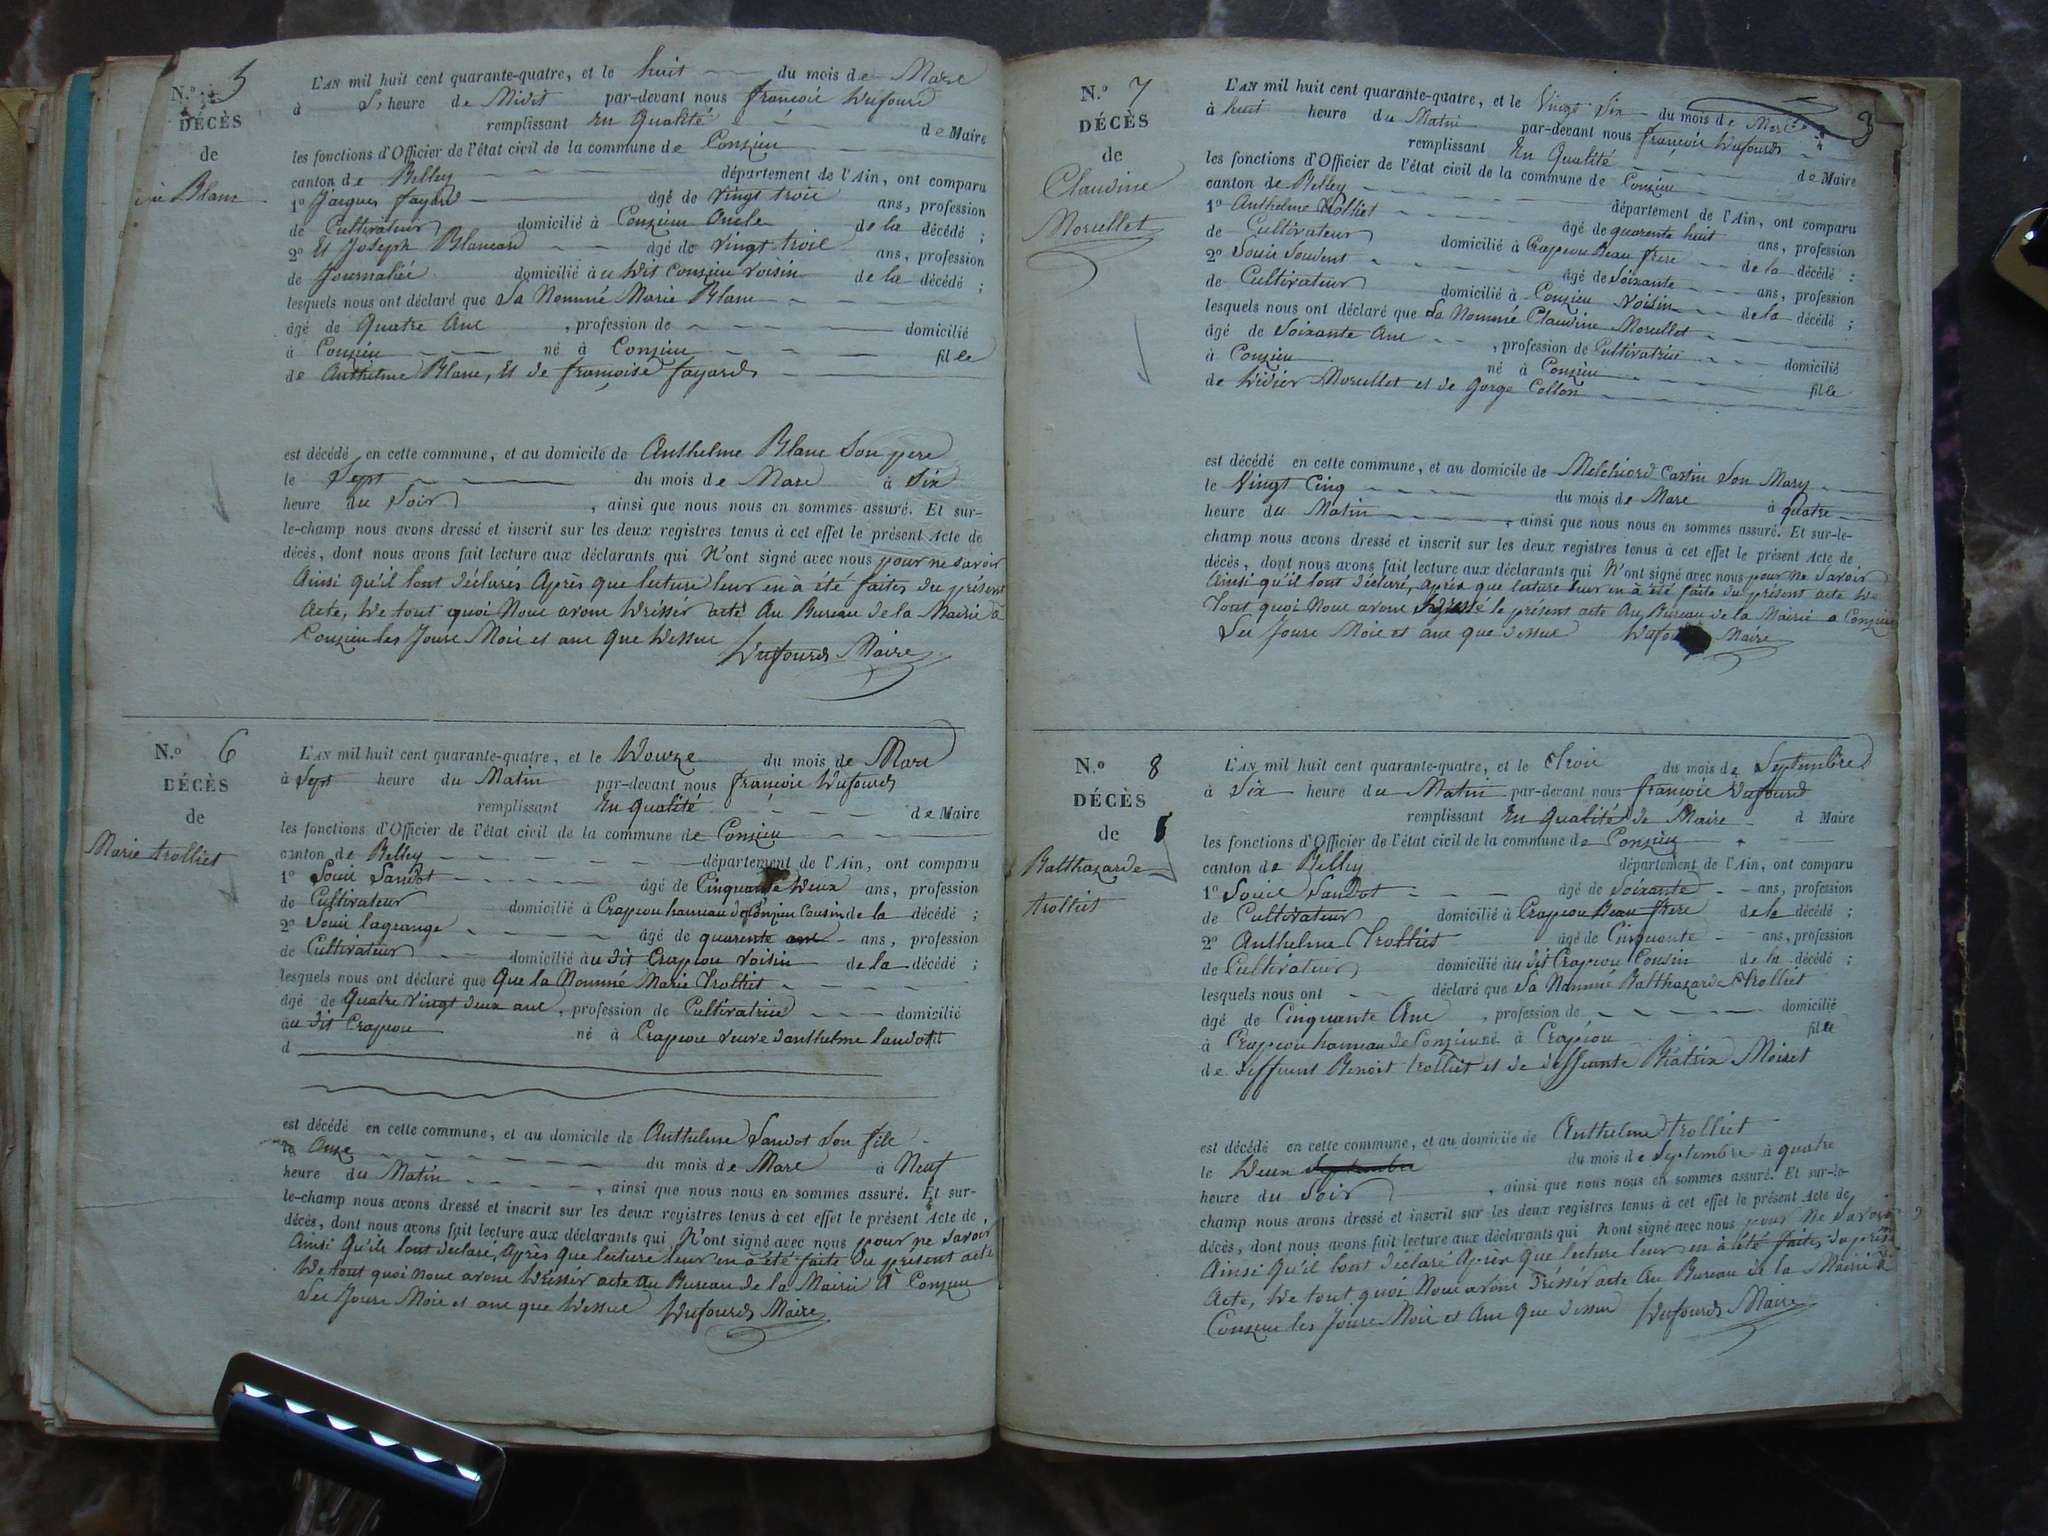 N.° 5
DÉCÈS
de
Blanc
L'AN mil huit cent quarante-quatre, et le huit du mois de Mars
à heure de Midit par-devant nous françois Dufourd
remplissant En Qualité de Maire
les fonctions d'Officier de l'état civil de la commune de Conzieu
canton de Belley département de l'Ain, ont comparu
1° Jacques fayard âgé de vingt trois ans, profession
de Cultivateur domicilié à Conzieu Oncle de la décédé ;
2° Et Joseph Blancard âgé de vingt trois ans, profession
de Journalié domicilié au Dit Conzieu voisin de la décédé ;
lesquels nous ont déclaré que La Nommé Marie Blanc
âgé de Quatre Ans , profession de domicilié
à Conzieu né à Conzieu fille
de Anthelme Blanc, Et de françoise fayard
est décédé en cette commune, et au domicile de Anthelme Blanc Son pere
le Sept du mois de Mars à Six
heure du Soir , ainsi que nous nous en sommes assuré. Et sur-
le-champ nous avons dressé et inscrit sur les deux registres tenus à cet effet le présent Acte de
décès, dont nous avons fait lecture aux déclarants qui N'ont signé avec nous pour ne savoir
Ainsi qu'il lont déclarés Après que lecture leur en à été faites du présent
Acte, De tout quoi Nous avons Dréssér acté Au Bureau de la Mairie à
Conzieu les Jours Mois et ans Que Dessus Dufourd Maire
N.° 6
DÉCÈS
de
Marie trolliet
L'AN mil huit cent quarante-quatre, et le Douze du mois de Mars
à Sept heure du Matin par-devant nous françois Dufourd
remplissant En qualité de Maire
les fonctions d'Officier de l'état civil de la commune de Conzieu
canton de Belley département de l'Ain, ont comparu
1° Louis Landot âgé de Cinquante Deux ans, profession
de Cultivateur domicilié à Crapeou hameau de Conzieu Cousin de la décédé ;
2° Louis lagrange âgé de quarente ans ans, profession
de Cultivateur domicilié au dit Crapeou voisin de la décédé ;
lesquels nous ont déclaré que Que la Nommé Marie Trolliet
âgé de Quatre vingt deux ans , profession de Cultivatrice domicilié
au dit Crapeou né à Crapeou veuve danthelme landot fil
d
est décédé en cette commune, et au domicile de Anthelme Landot Son fils
le Onze du mois de Mars à Neuf
heure du Matin , ainsi que nous nous en sommes assuré. Et sur-
le-champ nous avons dressé et inscrit sur les deux registres tenus à cet effet le présent Acte de
décès, dont nous avons fait lecture aux déclarants qui N'ont signé avec nous pour ne savoir
Ainsi Qu'ils lont déclaré, Après Que lecture leur en à été faite du présent acte
De tout quoi Nous avons Dréssér acte au Bureau de la Mairie A Conzieu
Les Jours Mois et ans que Dessus Dufourd Maire
3
N.° 7
DÉCÈS
de
Claudine
Morellet
L'AN mil huit cent quarante-quatre, et le Vingt Six du mois de Mars
à huit heure du Matin par-devant nous françois Dufourd
remplissant En Qualité de Maire
les fonctions d'Officier de l'état civil de la commune de Conzieu
canton de Belley département de l'Ain, ont comparu
1° Anthelme Trolliet âgé de quarente huit ans, profession
de Cultivateur domicilié à Crapeou Beau frere de la décédé ;
2° Louis âgé de Soixante ans, profession
de Cultivateur domicilié à Conzieu Voisin de la décédé ;
lesquels nous ont déclaré que La Nommé Claudine Morellet
âgé de Soixante Ans , profession de Cultivatrice domicilié
à Conzieu né à Conzieu fille
de Didier Morellet et de Gorge Collon
est décédé en cette commune, et au domicile de Melchiord Castin Son Mary
le Vingt Cinq du mois de Mars à quatre
heure du Matin , ainsi que nous nous en sommes assuré. Et sur-le-
champ nous avons dressé et inscrit sur les deux registres tenus à cet effet le présent Acte de
décès, dont nous avons fait lecture aux déclarants qui N'ont signé avec nous pour ne Savoir
Ainsi qu'il lont déclaré, après que lecture leur en à été faite du présent acte De
Tout quoi Nous avons le présent acte Au Bureau de la Mairie a Conzieu
Les Jours Mois et ans que dessus Dufourd Maire
N.° 8
DÉCÈS
de
Balthazarde
trolliet
L'AN mil huit cent quarante-quatre, et le trois du mois de Septembre
à Six heure du Matin par-devant nous françois Dufourd
remplissant En Qualité de Maire d Maire
les fonctions d'Officier de l'état civil de la commune de Conzieu
canton de Belley département de l'Ain, ont comparu
1° Louis Landot âgé de Soixante ans, profession
de Cultivateur domicilié à Crapeou Beau frere de la décédé ;
2° Anthelme Trolliet âgé de Cinquante ans, profession
de Cultivateur domicilié au dit Crapeou Cousin de la décédé ;
lesquels nous ont déclaré que La Nommé Balthazarde trolliet
âgé de Cinquante Ans , profession de domicilié
à Crapeou hameau de Conzieu né à Crapeou fille
de deffeunt Benoit trolliet et de deffeunte Béatrix Moiret
est décédé en cette commune, et au domicile de Anthelme trolliet
le Deux Septembre du mois de Septembre à quatre
heure du Soir , ainsi que nous nous en sommes assuré. Et sur-le-
champ nous avons dressé et inscrit sur les deux registres tenus à cet effet le présent Acte de
décès, dont nous avons fait lecture aux déclarants qui N'ont signé avec nous pour ne savoir
Ainsi Qu'il lont déclaré Après Que lecture leur en à été faites du présent
Acte, De tout quoi Nous avons Dréssér acte Au Bureau de la Mairie à
Conzieu les Jours Mois et Ans Que dessus Dufourd Maire